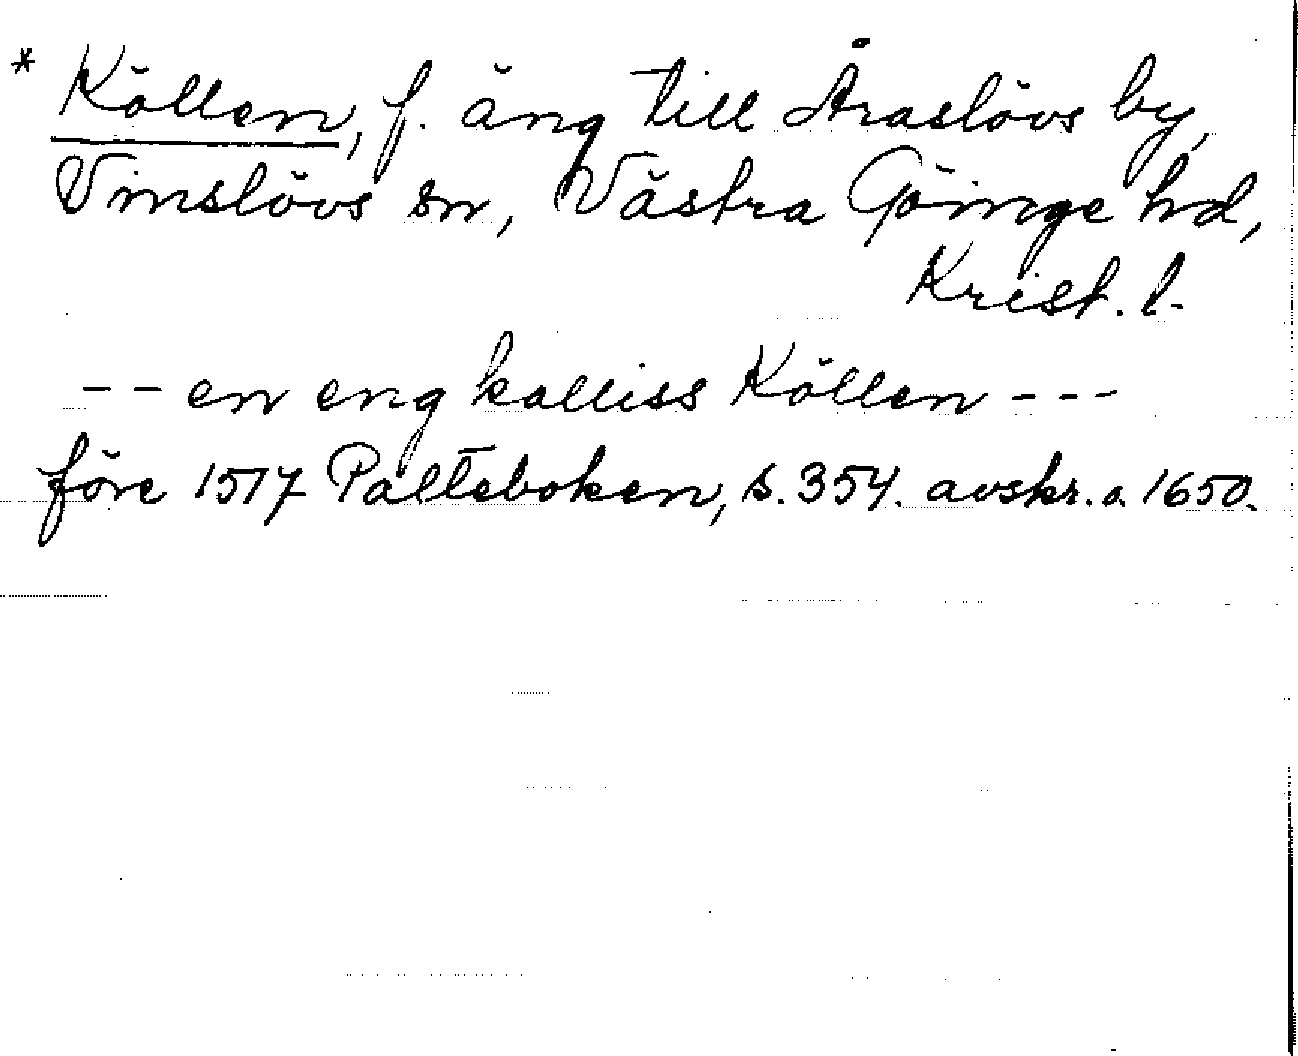 * Köllen, f. äng till Åraslövs by,
Vinslövs sn, Västra Göinge hd,
Krist. l.
-- en eng kalliss Köllen ---
före 1517 Palteboken, s. 354. avskr. o. 1650.